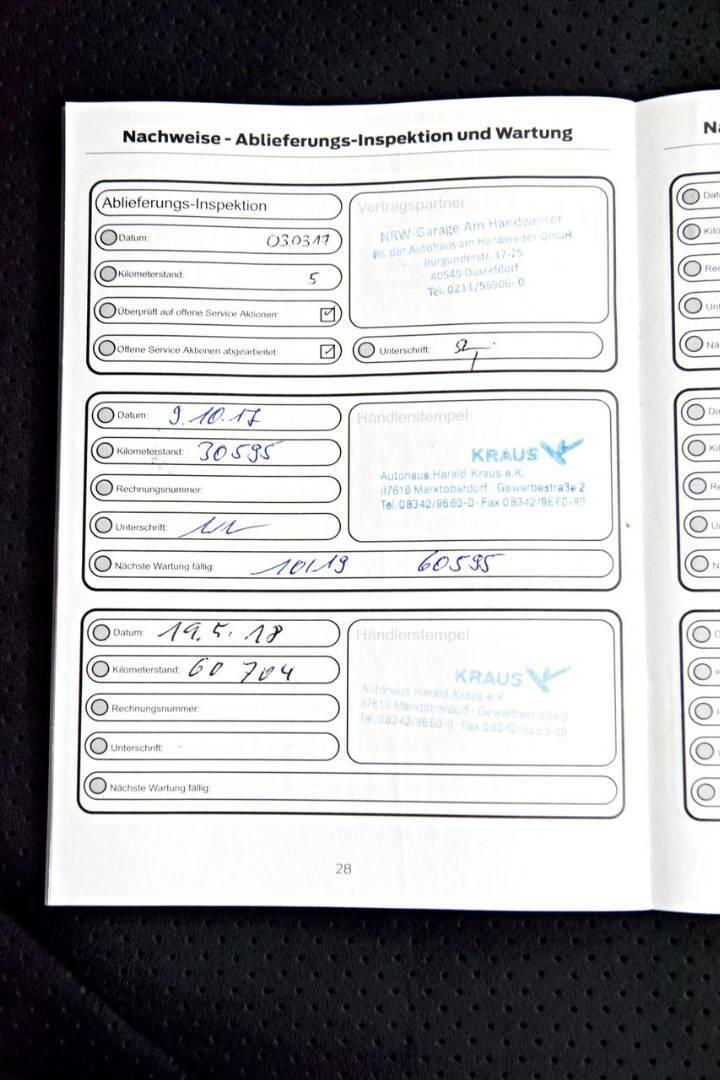 Nachweise - Ablieferungs-Inspektion und Wartung
Ablieferungs-Inspektion
Datum: 030317
Kilometerstand: 5
Überprüft auf offene Service Aktionen:
Offene Service Aktionen abgearbeitet:
Vertragspartner
NRW-Garage Am Handweiser
NL der Autohaus am Handweiser GmbH
Burgunderstr. 17-25
40549 Düsseldorf
Tel. 0211/56906-0
Unterschrift:
Datum: 9.10.17
Kilometerstand: 30595
Rechnungsnummer:
Unterschrift:
Händlerstempel
KRAUS
Autohaus Harald Kraus e.K.
87616 Marktoberdorf · Gewerbestraße 2
Tel. 08342/9660-0 · Fax 08342/9660-90
Nächste Wartung fällig: 10/19 60595
Datum: 19.5.18
Kilometerstand: 60 704
Rechnungsnummer:
Unterschrift:
Händlerstempel
KRAUS
Autohaus Harald Kraus e.K.
87616 Marktoberdorf · Gewerbestraße 2
Tel. 08342/9660-0 · Fax 08342/9660-90
Nächste Wartung fällig:
28